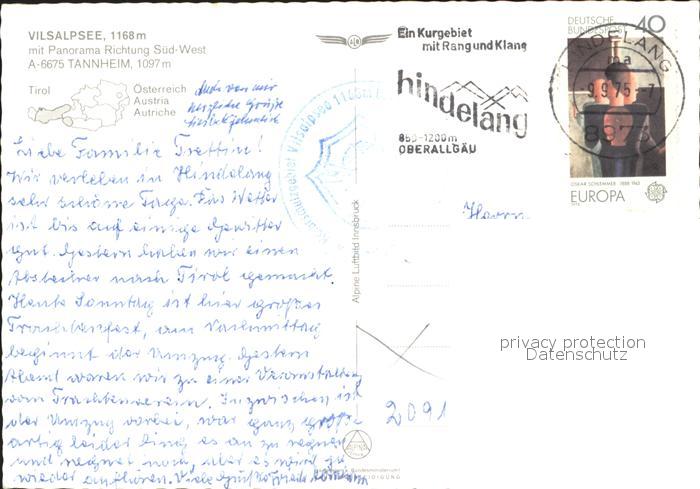 VILSALPSEE, 1168 m
mit Panorama Richtung Süd-West
A-6675 TANNHEIM, 1097 m
Tirol
Österreich
Austria
Autriche
Auch von mir
herzliche Grüße
Liebe Familie Trettin!
Wir verleben in Hindelang
sehr schöne Tage. Das Wetter
ist bis auf einige Gewitter
gut. Gestern haben wir einen
Abstecher nach Tirol gemacht.
Heute Sonntag ist hier großes
Trachtenfest, am Nachmittag
beginnt der Umzug. Gestern
Abend waren wir zu einer Veranstaltung
vom Trachtenverein. Inzwischen ist
der Umzug vorbei, war ganz groß
artig leider fing es an zu regnen
und regnet noch, aber es wird ja
wieder aufhören. Viele Grüße
Alpine Luftbild Innsbruck
Vilsalpsee 1168m
Ein Kurgebiet
mit Rang und Klang
hindelang
850-1200m
OBERALLGÄU
DEUTSCHE
BUNDESPOST
40
HINDELANG
ma
-9.9.75-7
8973
OSKAR SCHLEMMER 1888-1943
EUROPA
Herrn
privacy protection
Datenschutz
2091